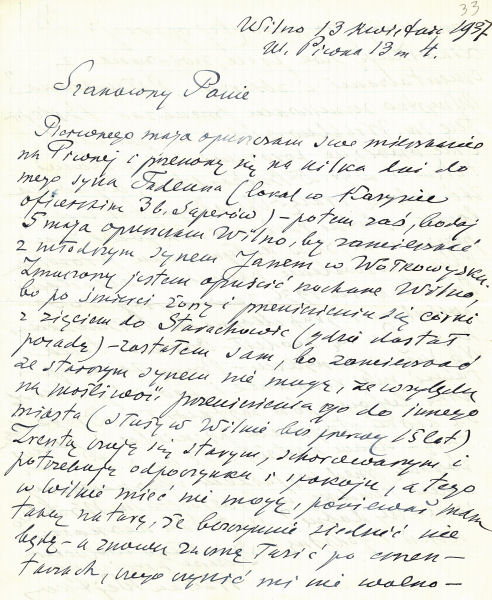 33
Wilno 13 kwietnia 1937
Ul. Piwna 13 m 4.
Szanowny Panie
Pierwszego maja opuszczam swe mieszkanie
na Piwnej i przenoszę się na kilka dni do
mego syna Tadeusza (lokal w Kasynie
oficerskim 3 b. Saperów) – potem zaś, bodaj
5 maja opuszczam Wilno, by zamieszkać
z młodszym synem Janem w Wołkowysku.
Zmuszony jestem opuścić kochane Wilno,
bo po śmierci żony i przeniesieniu się córki
z zięciem do Starachowic (gdzie dostał
posadę) – zostałem sam, bo zamieszkać
ze starszym synem nie mogę, ze względu
na możliwość przeniesienia go do innego
miasta (służy w Wilnie bez przerwy 15 lat)
Zresztą czuję się starym, schorowanym i
potrzebuję odpoczynku i spokoju, a tego
w Wilnie mieć nie mogę, ponieważ mam
taką naturę, że bezczynnie siedzieć nie
będę – a znowu zacznę łazić po cmen–
tarzach, czego czynić mi nie wolno –